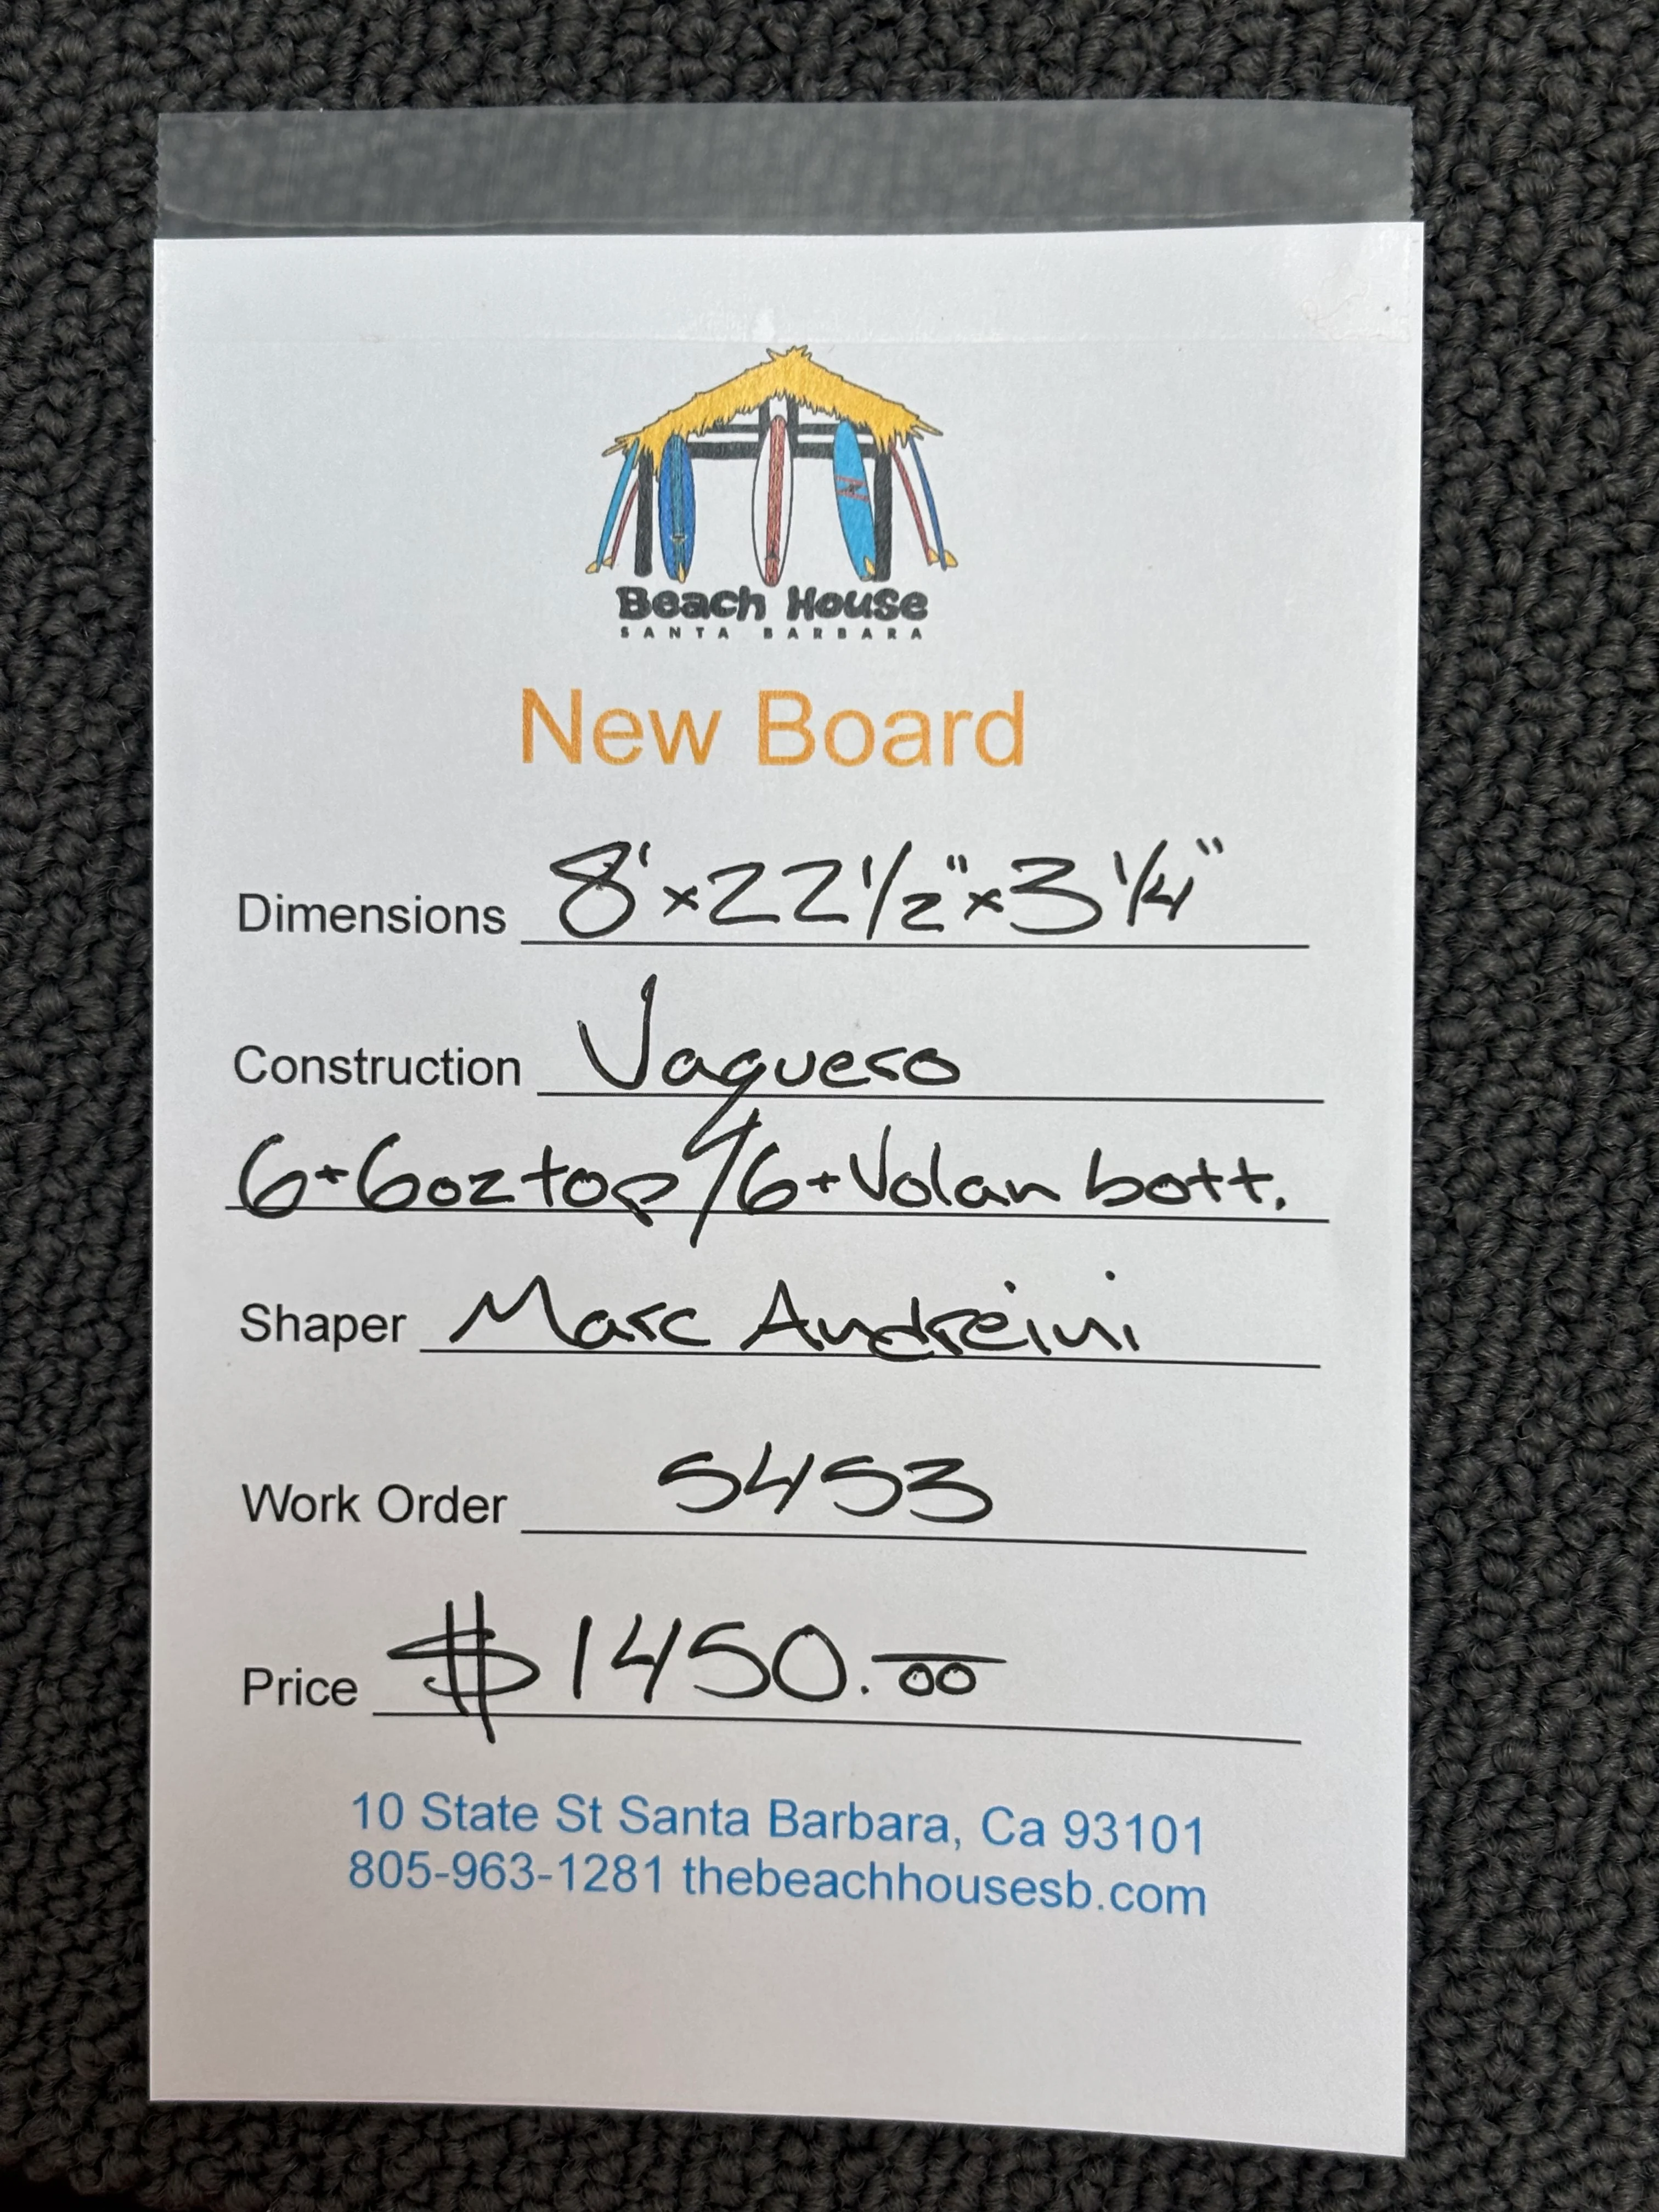 Beach House
SANTA BARBARA
New Board
Dimensions 8' x 22 1/2" x 3 1/4"
Construction Vaquero
6+6oz top / 6+Volan bott.
Shaper Marc Andreini
Work Order 5453
Price $1450.00
10 State St Santa Barbara, Ca 93101
805-963-1281 thebeachhousesb.com